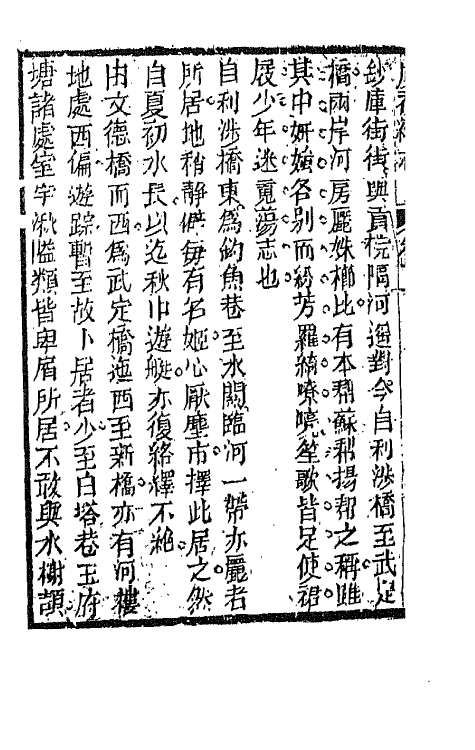 鈔庫街街與貢院隔河遥對今自利涉橋至武定
橋兩岸河房麗姝櫛比有本幇蘇幇揚幇之稱雖
其中妍媸名别而紛芳羅綺嘹喨笙歌皆足使裙
屐少年迷魂蕩志也
自利涉橋東爲釣魚巷至水關臨河一帶亦麗者
所居地稍静僻每有名姬心厭塵市擇此居之然
自夏初水長以迄秋中遊艇亦復絡繹不絶
由文德橋而西爲武定橋迤西至新橋亦有河樓
地處西偏遊踪暫至故卜居者少至白塔巷王府
塘諸處室宇湫隘類皆卑屑所居不敢與水榭頡